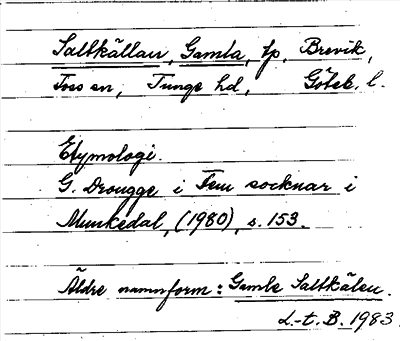 Saltkällan, Gamla, tp, Brevik,
Foss sn, Tunge hd, Göteb. l.
Etymologi.
G. Drougge i Fem socknar i
Munkedal, (1980), s. 153.
Äldre namnform: Gamle Saltkälen.
L.-t. B. 1983